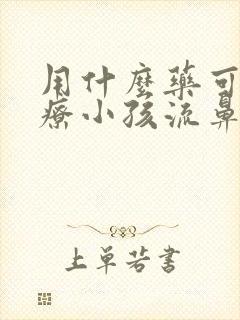 用什麼藥可
療小孩流鼻
上單若書